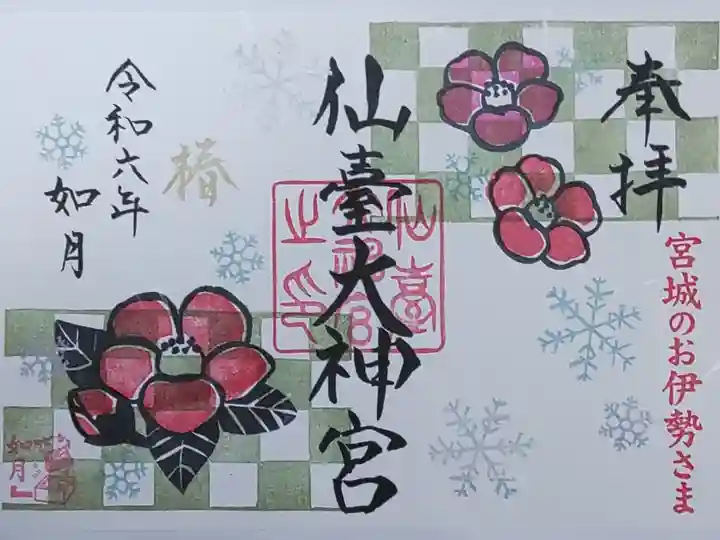 奉拝
宮城のお伊勢さま
仙臺大神宮
仙臺
大神宮
之印
椿
令和六年
如月
如月